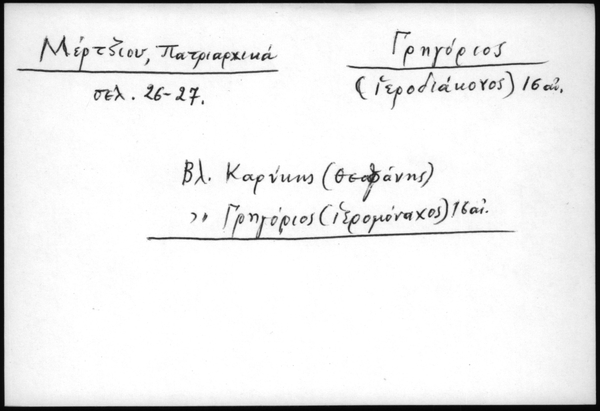 Μέρτζιου, Πατριαρχικά
σελ. 26-27.
Γρηγόριος
(ἱεροδιάκονος) 16 αἰ.
Βλ. Καρύκης (Θεοφάνης)
›› Γρηγόριος (ἱερομόναχος) 16 αἰ.